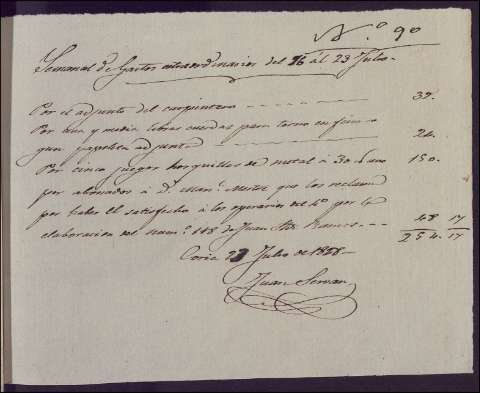 N.º 90
Semanal de Gastos extraordinarios del 16 al 23 Julio
Por el adjunto del carpintero 32.
Por una y media libras cuerdas para torno en fino
gun papeleta adjunta 24.
Por cinco juegos horquillas de metal á 30 uno 150.
por abonados á D. Man.l Mestre que los reclama
por haber él satisfecho á los operarios del 4º por la
elaboracion del num.º 118 de Juan Ramos 48 17
254.17
Coria 23 Julio de 1858
Juan Servan